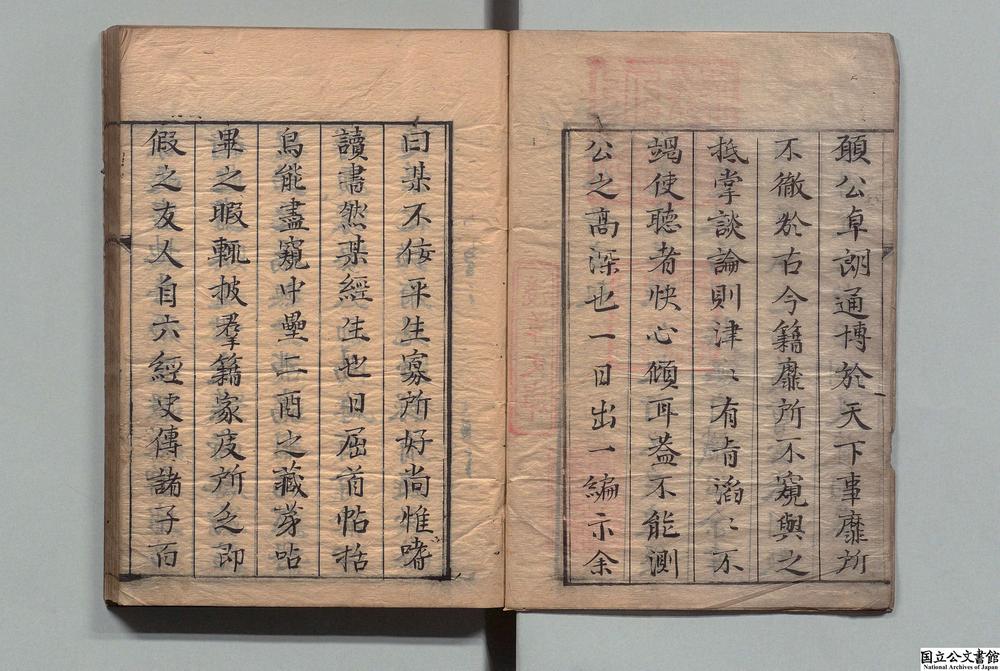 顧公卓朗通博於天下事靡所
不徹於古今籍靡所不窺與之
抵掌談論則津〻有旨滔〻不
竭使聽者快心傾耳葢不能測
公之高深也一日出一編示余
曰某不佞平生寡所好尚惟嗜
讀書然某經生也日屈首帖括
烏能盡窺中壘二酉之藏第呫
畢之暇輒披羣籍家庋所乏即
假之友人自六經史傳諸子百
国立公文書館
National Archives of Japan